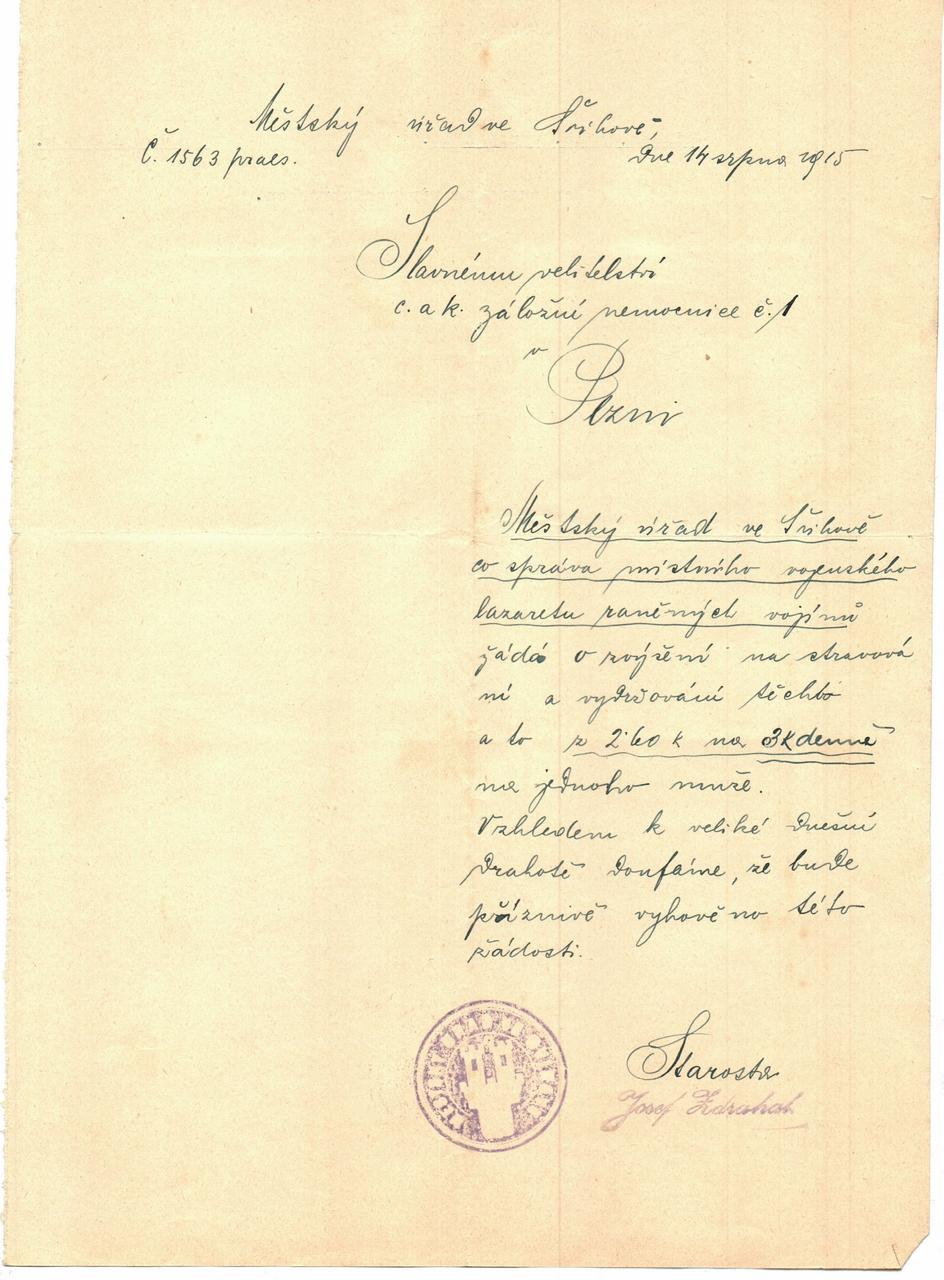 Městský úřad ve Švihově,
Č. 1563 praes.
Dne 14 srpna 1915
Slavnému velitelství
c. a k. záložní nemocnice č. 1
v
Plzni
Městský úřad ve Švihově
co správa místního vojenského
lazaretu raněných vojínů
žádá o zvýšení na stravová
ní a vydržování těchto
a to z 2·60 k na 3K denně
na jednoho muže.
Vzhledem k veliké dnešní
drahotě doufáme, že bude
příznivě vyhověno této
žádosti.
Starosta
Josef Zdrahal